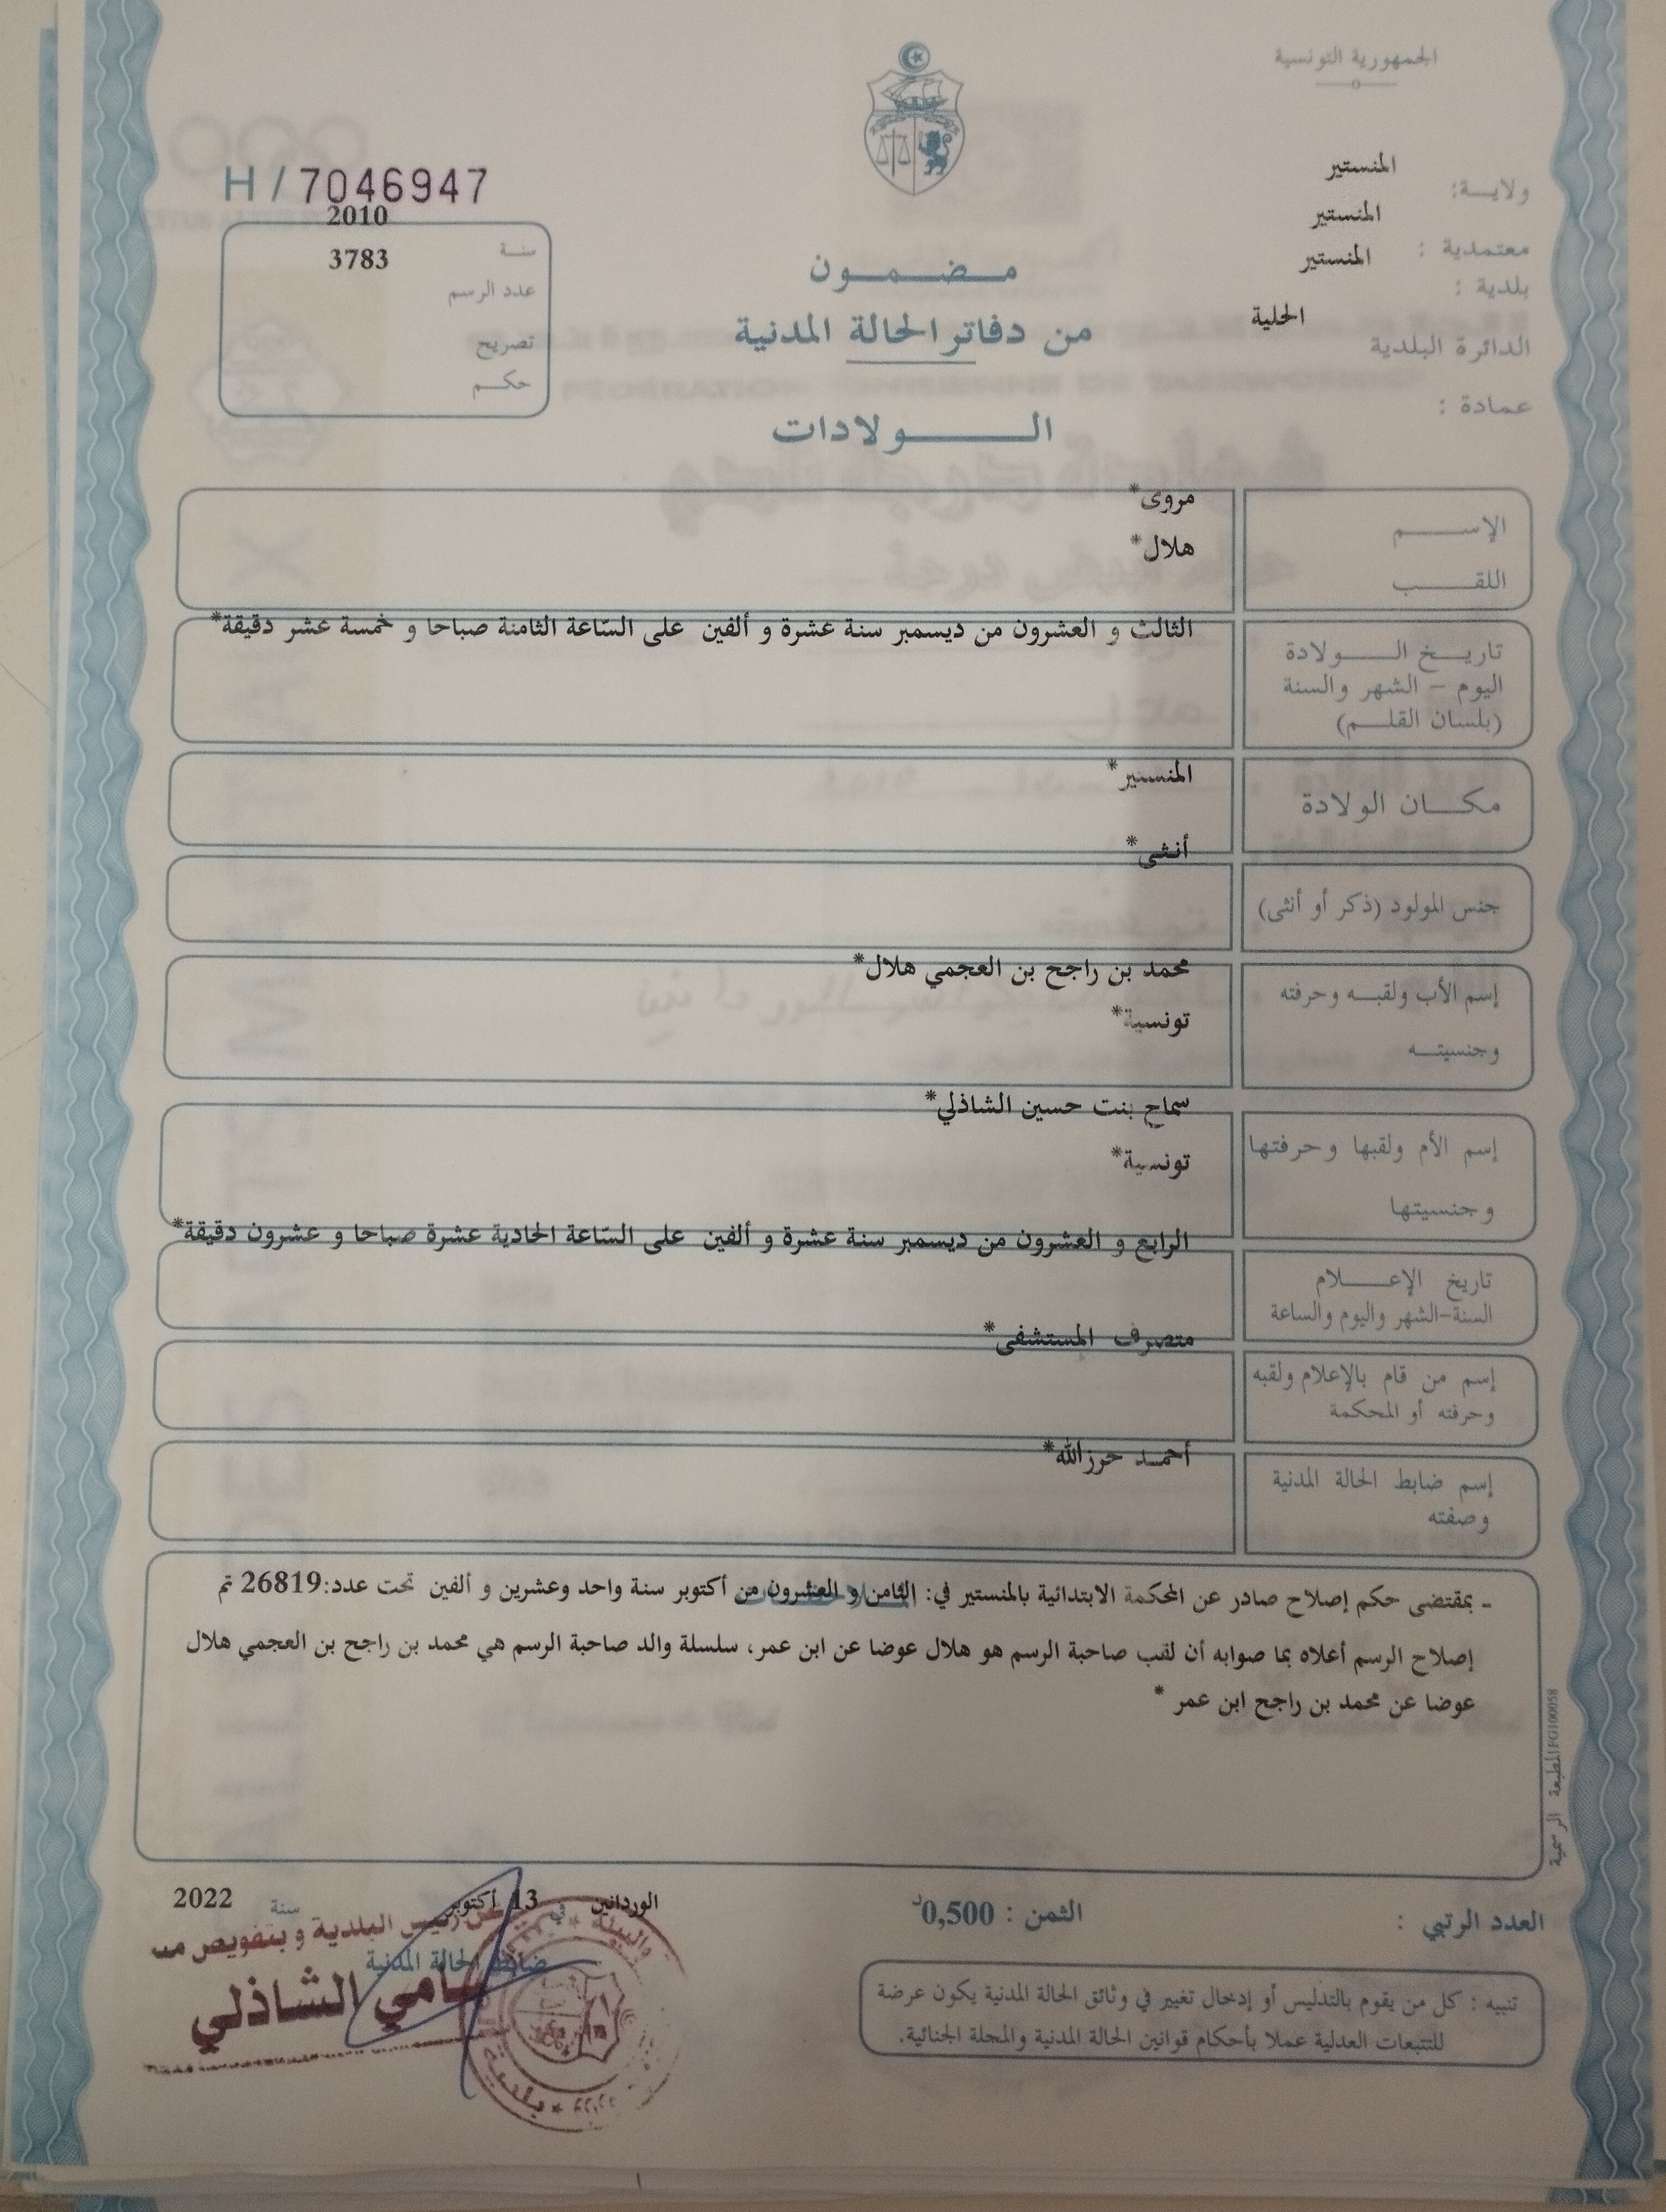 الجمهورية التونسية
ولاية: المنستير
معتمدية : المنستير
بلدية : المنستير
الدائرة البلدية الحلية
عمادة :
H / 7046947
سنة 2010
عدد الرسم 3783
تصريح
حكم
مضمون
من دفاتر الحالة المدنية
الولادات
الإسم مروى*
اللقب هلال*
تاريخ الولادة الثالث و العشرون من ديسمبر سنة عشرة و ألفين على السّاعة الثامنة صباحا و خمسة عشر دقيقة*
اليوم – الشهر والسنة
(بلسان القلم)
مكان الولادة المنستير*
جنس المولود (ذكر أو أنثى) أنثى*
إسم الأب ولقبه وحرفته محمد بن راجح بن العجمي هلال*
وجنسيته تونسية*
إسم الأم ولقبها وحرفتها سماح بنت حسين الشاذلي*
وجنسيتها تونسية*
تاريخ الإعلام الرابع و العشرون من ديسمبر سنة عشرة و ألفين على السّاعة الحادية عشرة صباحا و عشرون دقيقة*
السنة-الشهر واليوم والساعة
إسم من قام بالإعلام ولقبه متصرف المستشفى*
وحرفته أو المحكمة
إسم ضابط الحالة المدنية أحمد حرزالله*
وصفته
- بمقتضى حكم إصلاح صادر عن المحكمة الابتدائية بالمنستير في: الثامن و العشرون من أكتوبر سنة واحد وعشرين و ألفين تحت عدد:26819 تم
إصلاح الرسم أعلاه بما صوابه أن لقب صاحبة الرسم هو هلال عوضا عن ابن عمر، سلسلة والد صاحبة الرسم هي محمد بن راجح بن العجمي هلال
عوضا عن محمد بن راجح ابن عمر *
المطبعة الرسمية FG100058
العدد الرتبي :
الثمن : 0,500د
الوردانين في 13 أكتوبر سنة 2022
عن رئيس البلدية و بتفويض منه
ضابط الحالة المدنية
سامي الشاذلي
بلدية
تنبيه : كل من يقوم بالتدليس أو إدخال تغيير في وثائق الحالة المدنية يكون عرضة
للتتبعات العدلية عملا بأحكام قوانين الحالة المدنية والمجلة الجنائية.